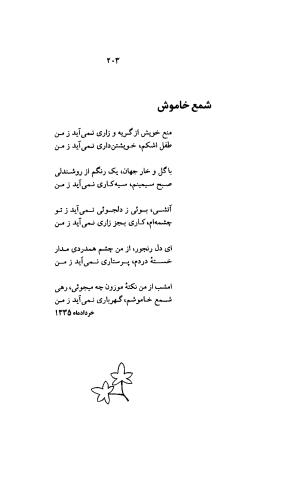 ۲۰۳
شمع خاموش
منع خویش از گریه و زاری نمی‌آید ز من
طفل اشکم، خویشتن‌داری نمی‌آید ز من
با گل و خار جهان، یک رنگم از روشندلی
صبح سیمینم، سیه‌کاری نمی‌آید ز من
آتشی، بوئی ز دلجوئی نمی‌آید ز تو
چشمه‌ام، کاری بجز زاری نمی‌آید ز من
ای دل رنجور، از من چشم همدردی مدار
خستهٔ دردم، پرستاری نمی‌آید ز من
امشب از من نکتهٔ موزون چه میجوئی، رهی
شمع خاموشم، گهرباری نمی‌آید ز من
خردادماه ۱۳۳۵